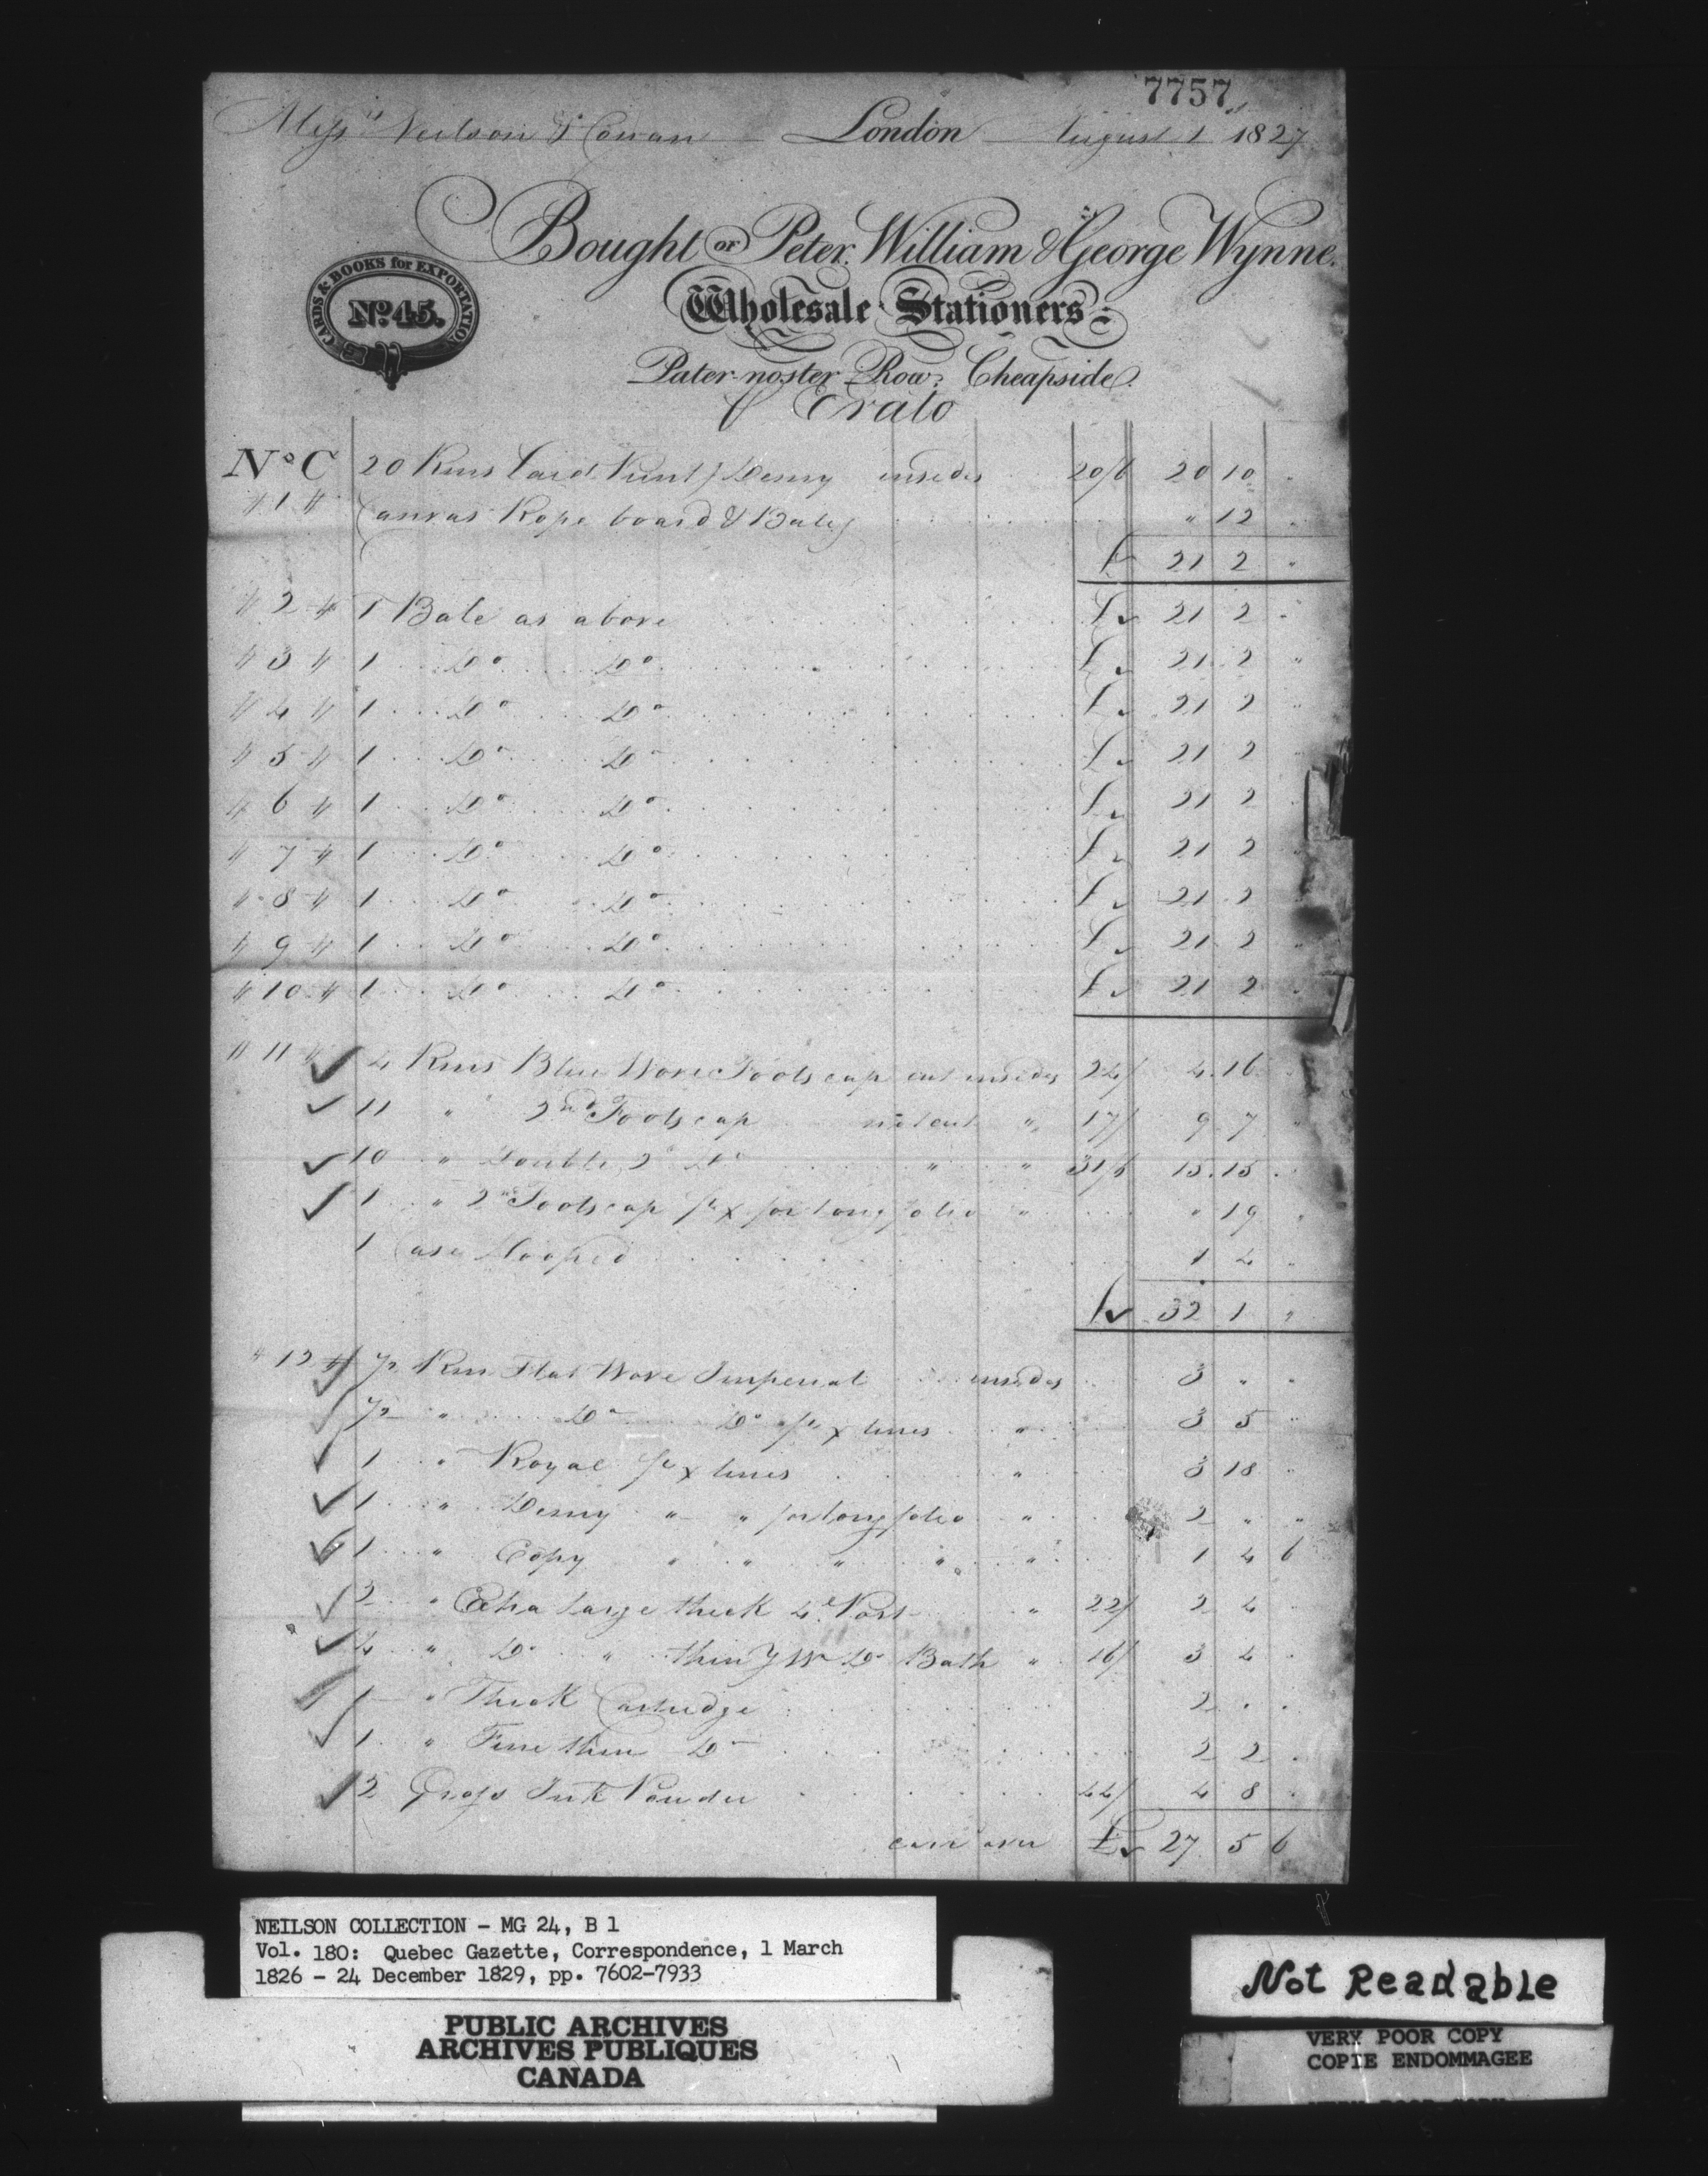 7757
Messrs Neilson & Cowan London August 1st 1827
Bought of Peter, William & George Wynne.
CARDS & BOOKS for EXPORTATION
No. 45.
Wholesale Stationers
Pater-noster Row, Cheapside.
Erato
No C 20 Rms Laid Print / Demy insides 20/6 20 10 "
" 1 " Canvas Rope board & Baley " 12 "
£ 21 2 "
" 2 " 1 Bale as above £ 21 2 "
" 3 " 1 Do Do £ 21 2 "
" 4 " 1 Do Do £ 21 2 "
" 5 " 1 Do Do £ 21 2 "
" 6 " 1 Do Do £ 21 2 "
" 7 " 1 Do Do £ 21 2 "
" 8 " 1 Do Do £ 21 2 "
" 9 " 1 Do Do £ 21 2 "
" 10 " 1 Do Do £ 21 2 "
" 11 " 4 Rms Blue Wove Foolscap cut insides 24/ 4 16 "
11 " 2nd Foolscap not cut " 17/ 9 7 "
10 " Double 2d Do " " 31/6 15 15 "
1 " 2d Foolscap for long folio " " 19 "
1 Case Hooped 1 4 "
£ 32 1 "
" 12 " 1/2 Rm Flat Wove Imperial insides 3 " "
1/2 " Do Do fx lines " 3 5 "
1 " Royal fx lines " 3 18 "
1 " Demy " " for long folio " 2 " "
1 " Copy " " " " " 1 4 6
2 " Extra large thick 4to Post " 22/ 2 4 "
4 " Do " thin YW Do Bath " 16/ 3 4 "
1 " Thick Cartridge 2 " "
1 " Fine thin Do 2 2 "
2 Gross Ink Powder 44/ 4 8 "
carr over £ 27 5 6
NEILSON COLLECTION - MG 24, B 1
Vol. 180: Quebec Gazette, Correspondence, 1 March
1826 - 24 December 1829, pp. 7602-7933
PUBLIC ARCHIVES
ARCHIVES PUBLIQUES
CANADA
Not Readable
VERY POOR COPY
COPIE ENDOMMAGEE